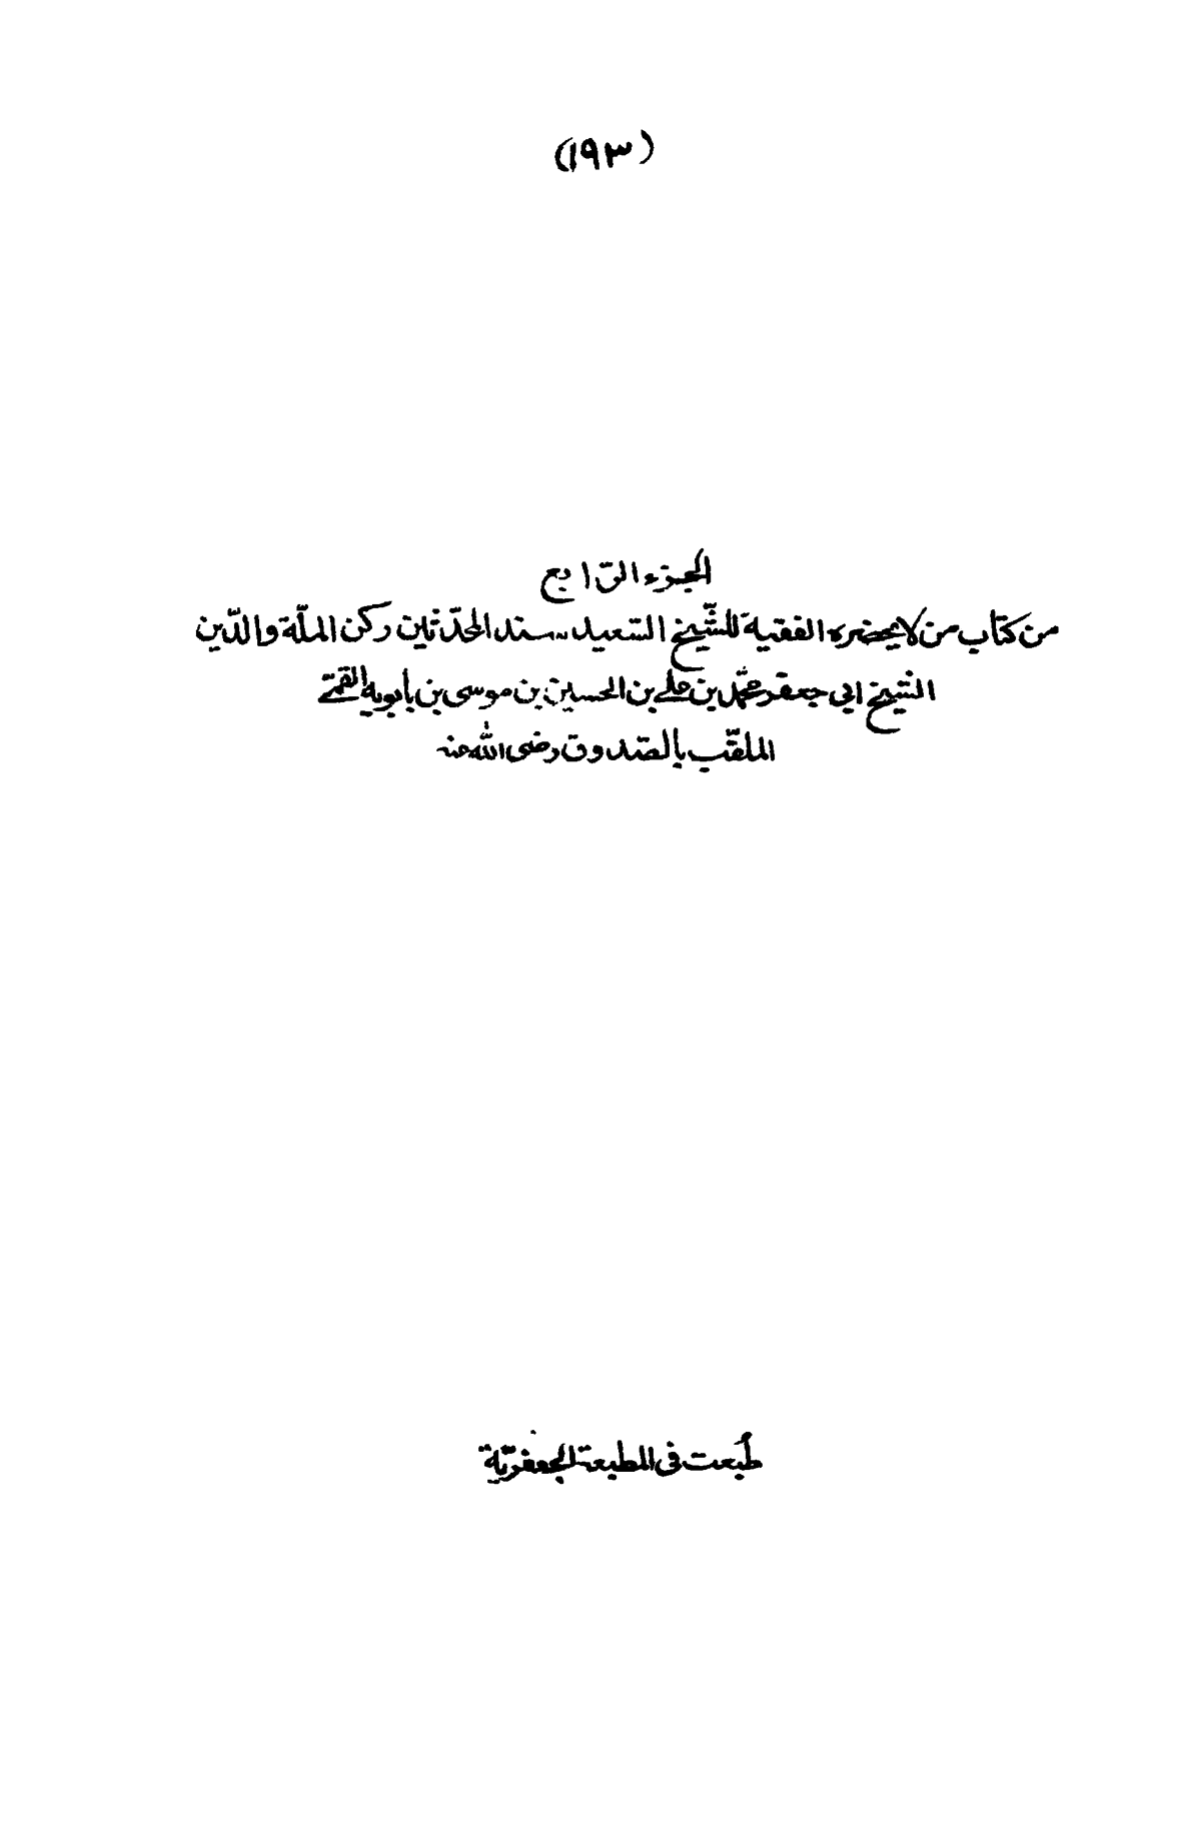 (١٩٣)
الجزء الرّابع
من كتاب من لا يحضره الفقيه للشّيخ السّعيد سند المحدّثين ركن الملّة والدّين
الشيخ ابي جعفر محمّد بن علي بن الحسين بن موسى بن بابويه القمّي
الملقّب بالصّدوق رضى الله عنه
طُبعت فى المطبعة الجعفريّة